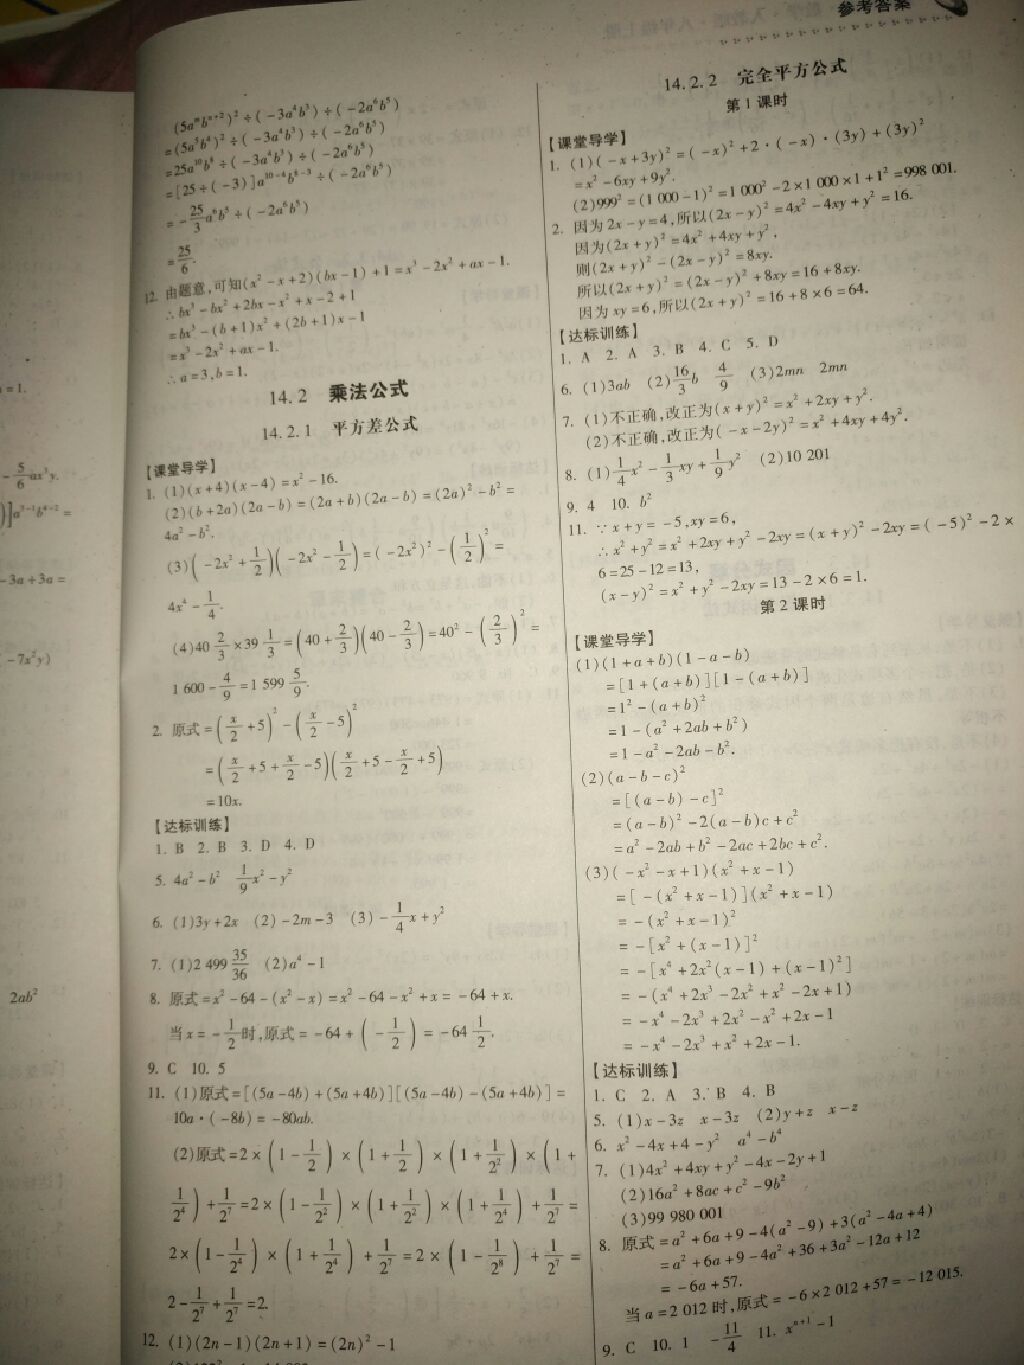 参考答案
(5aᵐbⁿ⁺²)²÷(-3a⁴b³)÷(-2a⁶b⁵)
=(5a⁵b⁴)²÷(-3a⁴b³)÷(-2a⁶b⁵)
=25a¹⁰b⁸÷(-3a⁴b³)÷(-2a⁶b⁵)
=[25÷(-3)]a¹⁰⁻⁴b⁸⁻³÷(-2a⁶b⁵)
=-25/3a⁶b⁵÷(-2a⁶b⁵)
=25/6.
12. 由题意,可知(x²-x+2)(bx-1)+1=x³-2x²+ax-1.
∴bx³-bx²+2bx-x²+x-2+1
=bx³-(b+1)x²+(2b+1)x-1
=x³-2x²+ax-1.
∴a=3,b=1.
14.2 乘法公式
14.2.1 平方差公式
【课堂导学】
1. (1)(x+4)(x-4)=x²-16.
(2)(b+2a)(2a-b)=(2a+b)(2a-b)=(2a)²-b²=
4a²-b².
(3)(-2x²+1/2)(-2x²-1/2)=(-2x²)²-(1/2)²=
4x⁴-1/4.
(4)40 2/3×39 1/3=(40+2/3)(40-2/3)=40²-(2/3)²=
1 600-4/9=1 599 5/9.
2. 原式=(x/2+5)²-(x/2-5)²
=(x/2+5+x/2-5)(x/2+5-x/2+5)
=10x.
【达标训练】
1. B 2. B 3. D 4. D
5. 4a²-b² 1/9x²-y²
6. (1)3y+2x (2)-2m-3 (3)-1/4x+y²
7. (1)2 499 35/36 (2)a⁴-1
8. 原式=x²-64-(x²-x)=x²-64-x²+x=-64+x.
当x=-1/2时,原式=-64+(-1/2)=-64 1/2.
9. C 10. 5
11. (1)原式=[(5a-4b)+(5a+4b)][(5a-4b)-(5a+4b)]=
10a·(-8b)=-80ab.
(2)原式=2×(1-1/2)×(1+1/2)×(1+1/2²)×(1+
1/2⁴)+1/2⁷=2×(1-1/2²)×(1+1/2²)×(1+1/2⁴)+1/2⁷=
2×(1-1/2⁴)×(1+1/2⁴)+1/2⁷=2×(1-1/2⁸)+1/2⁷=
2-1/2⁷+1/2⁷=2.
12. (1)(2n-1)(2n+1)=(2n)²-1
14.2.2 完全平方公式
第1课时
【课堂导学】
1. (1)(-x+3y)²=(-x)²+2·(-x)·(3y)+(3y)²
=x²-6xy+9y².
(2)999²=(1 000-1)²=1 000²-2×1 000×1+1²=998 001.
2. 因为2x-y=4,所以(2x-y)²=4x²-4xy+y²=16.
因为(2x+y)²=4x²+4xy+y²,
则(2x+y)²-(2x-y)²=8xy.
所以(2x+y)²=(2x-y)²+8xy=16+8xy.
因为xy=6,所以(2x+y)²=16+8×6=64.
【达标训练】
1. A 2. A 3. B 4. C 5. D
6. (1)3ab (2)16/3b 4/9 (3)2mn 2mn
7. (1)不正确,改正为(x+y)²=x²+2xy+y².
(2)不正确,改正为(-x-2y)²=x²+4xy+4y².
8. (1)1/4x²-1/3xy+1/9y² (2)10 201
9. 4 10. b²
11. ∵x+y=-5,xy=6,
∴x²+y²=x²+2xy+y²-2xy=(x+y)²-2xy=(-5)²-2×
6=25-12=13,
(x-y)²=x²+y²-2xy=13-2×6=1.
第2课时
【课堂导学】
(1)(1+a+b)(1-a-b)
=[1+(a+b)][1-(a+b)]
=1²-(a+b)²
=1-(a²+2ab+b²)
=1-a²-2ab-b².
(2)(a-b-c)²
=[(a-b)-c]²
=(a-b)²-2(a-b)c+c²
=a²-2ab+b²-2ac+2bc+c².
(3)(-x²-x+1)(x²+x-1)
=[-(x²+x-1)](x²+x-1)
=-(x²+x-1)²
=-[x²+(x-1)]²
=-[x⁴+2x²(x-1)+(x-1)²]
=-(x⁴+2x³-2x²+x²-2x+1)
=-x⁴-2x³+2x²-x²+2x-1
=-x⁴-2x³+x²+2x-1.
【达标训练】
1. C 2. A 3. B 4. B
5. (1)x-3z x-3z (2)y+z x-z
6. x²-4x+4-y² a⁴-b⁴
7. (1)4x²+4xy+y²-4x-2y+1
(2)16a²+8ac+c²-9b²
(3)99 980 001
8. 原式=a²+6a+9-4(a²-9)+3(a²-4a+4)
=a²+6a+9-4a²+36+3a²-12a+12
=-6a+57.
当a=2 012时,原式=-6×2 012+57=-12 015.
9. C 10. 1 -11/4 11. xⁿ⁺¹-1